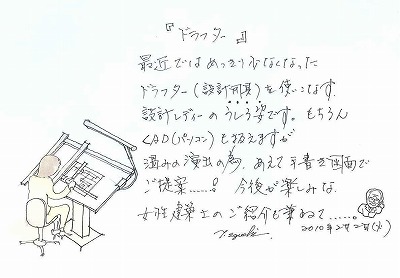 『ドラフター』
最近ではめっきり少なくなった
ドラフター(設計用具)を使いこなす
設計レディーのうしろ姿です。もちろん
CAD(パソコン)も扱えますが
温みの演出の為、あえて手書き画面で
ご提案……! 今後が楽しみな
女性建築士のご紹介も兼ねて……。
2010年2月2日(火)